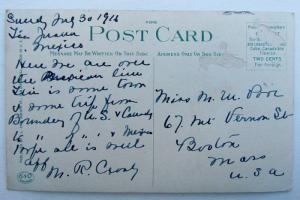 Sunday Aug 30 1916
Tia Juana
Mexico
POST CARD
MESSAGE MAY BE WRITTEN ON THIS SIDE
ADDRESS ONLY ON THIS SIDE
Here we are over
the Mexican line
This is some town
& some trip from
Boundary of U.S. & Canada
to " " " & Mexico
Hope all is well
M. R. Crosby
Miss M. M. Poor
67 Mt Vernon St
Boston
Mass
U.S.A
TWO CENTS